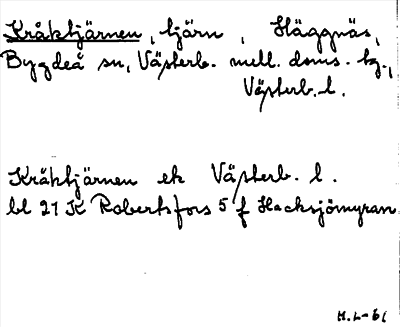 Kråktjärnen, tjärn, Häggnäs,
Bygdeå sn, Västerb. mell. doms. tg.,
Västerb. l.
Kråktjärnen ek Västerb. l.
bl 21 K Robertsfors 5 f Hacksjömyran
H.L-61